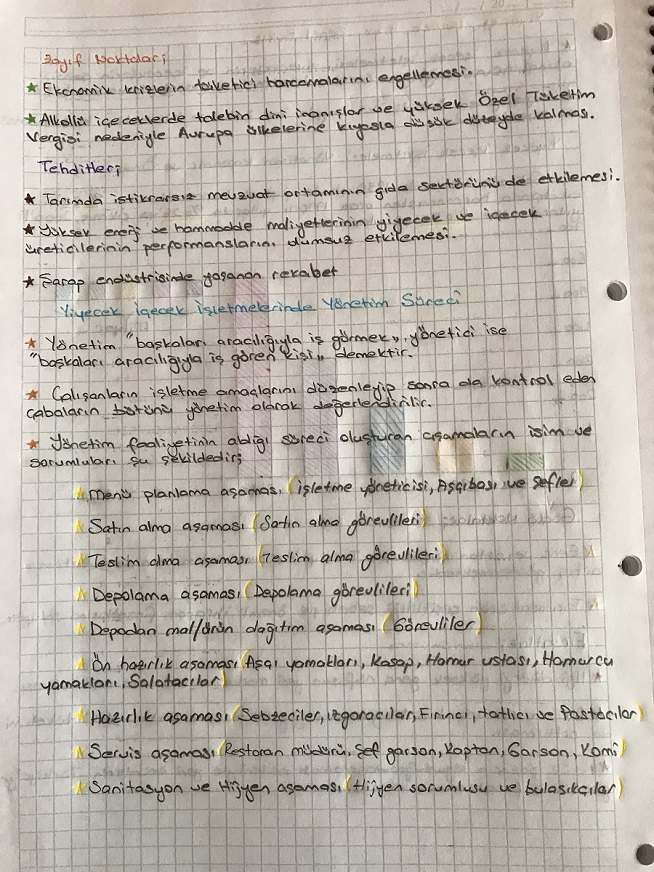 Zayıf Noktaları;
★ Ekonomik krizlerin tüketici harcamalarını engellemesi.
★ Alkollü içeceklerde talebin dini inanışlar ve yüksek Özel Tüketim
Vergisi nedeniyle Avrupa ülkelerine kıyasla düşük düzeyde kalması.
Tehditler;
★ Tarımda istikrarsız mevzuat ortamının gıda sektörünü de etkilemesi.
★ Yüksek enerji ve hammadde maliyetlerinin yiyecek ve içecek
üreticilerinin performanslarını olumsuz etkilemesi.
★ Şarap endüstrisinde yaşanan rekabet
Yiyecek İçecek İşletmelerinde Yönetim Süreci
★ Yönetim "başkaları aracılığıyla iş görmek", yönetici ise
"başkaları aracılığıyla iş gören kişi" demektir.
★ Çalışanların işletme amaçlarını düzenleyip sonra da kontrol eden
çabaların bütünü yönetim olarak değerlendirilir.
★ Yönetim faaliyetinin aldığı süreci oluşturan aşamaların isim ve
sorumluları şu şekildedir;
★ Menü planlama aşaması (işletme yöneticisi, Aşçıbaşı ve şefler)
★ Satın alma aşaması (Satın alma görevlileri)
★ Teslim alma aşaması (Teslim alma görevlileri)
★ Depolama aşaması (Depolama görevlileri)
★ Depodan mal/ürün dağıtım aşaması (Görevliler)
★ Ön hazırlık aşaması (Aşçı yamakları, Kasap, Hamur ustası, Hamurcu
yamakları, Salatacılar)
★ Hazırlık aşaması (Sebzeciler, ızgaracılar, Fırıncı, tatlıcı ve Pastacılar)
★ Servis aşaması (Restoran müdürü, Şef garson, Kaptan, Garson, Komi)
★ Sanitasyon ve Hijyen aşaması (Hijyen sorumlusu ve bulaşıkçılar)